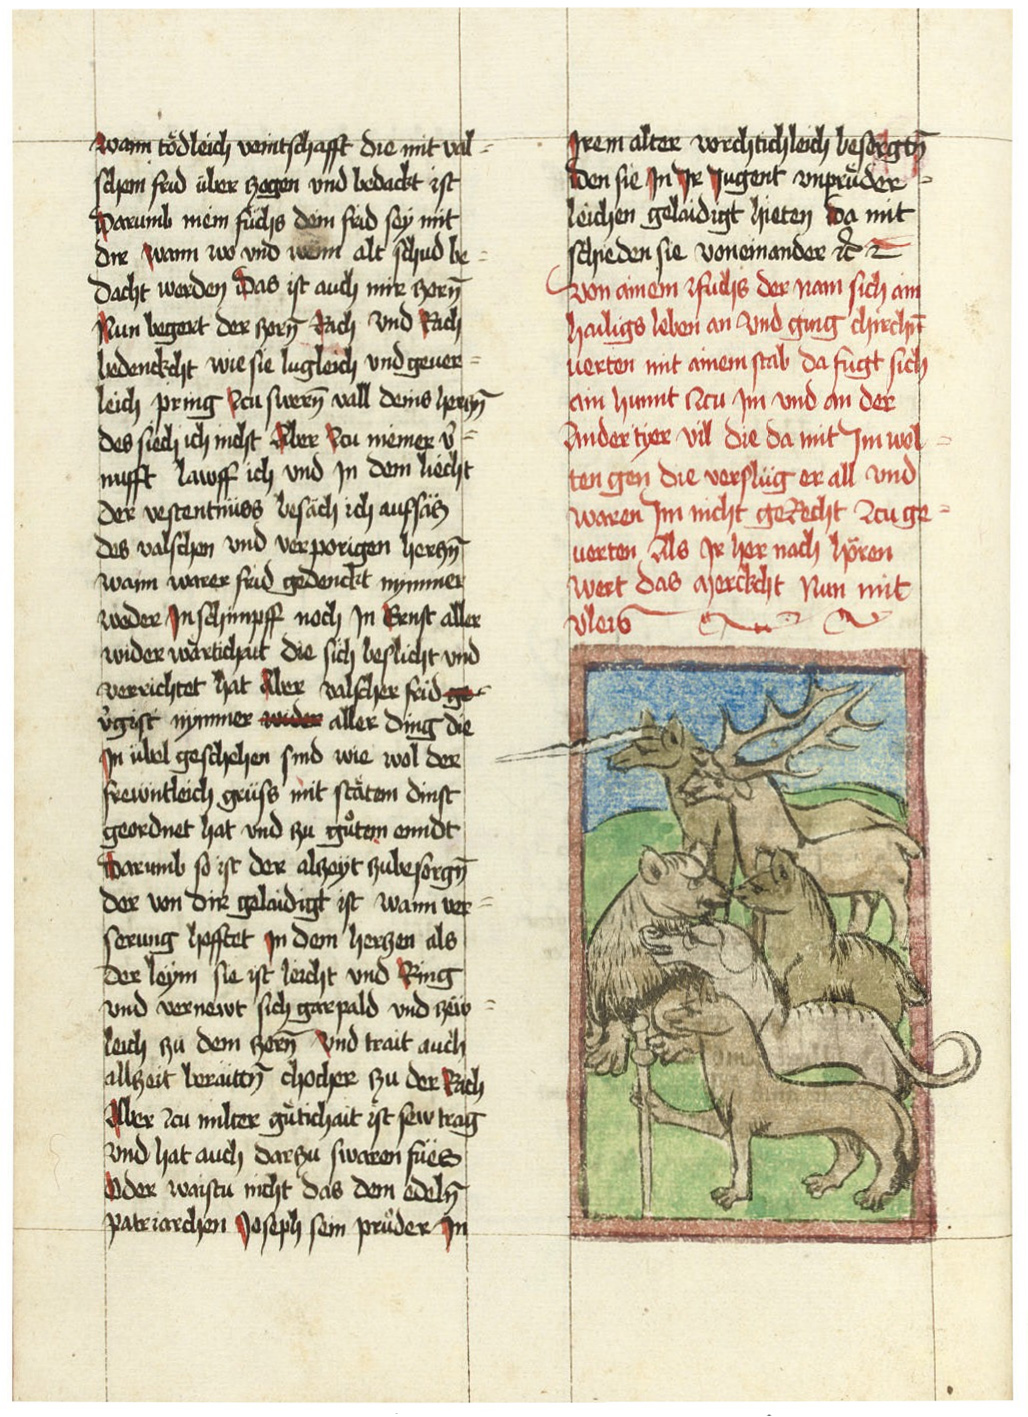 wann tödleich veintschafft die mit val-
schem frid über zogen vnd bedackt ist
Darumb mein füchs dein frid sey mit
dir wann wo vnd wenn alt schud be-
dacht werden Das ist auch mir zorn̄
Nun begert der zorn̄ Rach vnd Rach
bedenckcht wie sie lugleich vnd gever-
leich pring Zcu swern̄ vall deins herczn̄
des siech ich nicht Aber Zcu meiner v̄-
nufft lawff ich vnd Jn dem liecht
Der vestentnüss besäch ich aufsäcz
des valschen vnd verporigen herczn̄
wann warer frid gedenckt nymmer
weder Jn schimpff noch Jn Ernst aller
wider wärtichait die sich beslicht vnd
verrichtet hat Aber valscher frid ge-
v̄gist nymmer wider aller ding die
Jn übel geschehen sind wie wol der
frewntleich grüss mit stätem dinst
geordnet hat vnd zu gůtem enndt
Darumb so ist der alzeyt zubesorgn̄
der von dir gelaidigt ist wann ver-
serung hefftet Jn dem herczen als
Der leym sie ist leicht vnd Ring
vnd vernewt sich garpald vnd zeiv-
leich zu dem zorn̄ Vnd trait auch
allzeit beraittn̄ chocher zu der Rach
Aber zcu milter gütichait ist sew trag
vnd hat auch darzu swaren füess
Oder waistu nicht das dem edeln̄
patriarchen Joseph sein prüder Jn
Jrem alter vorchtichleich besorgtn̄
Den sie Jn Jr Jugent vnprüder-
leichen gelaidigt hieten Da mit
schieden sie voneinander ꝛc̄ ꝛc
Von ainem Fuchs der nam sich ain
hailigs leben an vnd ging chirchfe-
uerten mit ainem stab da fügt sich
ain hunnt Zcu Jm vnd an der
Ander tyer vil die da mit Jm wol-
ten gen die verslüg er all vnd
waren Jm nicht geRecht Zcu ge-
uerten Als Jr her nach hören
wert das merckcht Nun mit
vleis